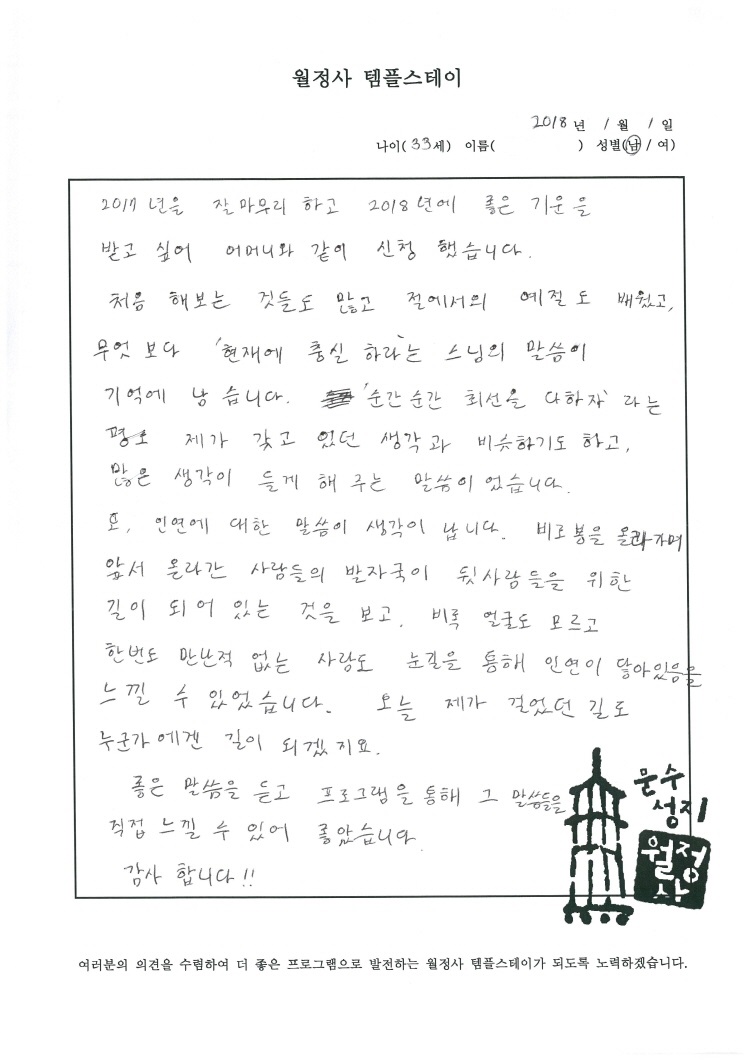 월정사 템플스테이
2018 년 1 월 1 일
나이( 33 세) 이름( ) 성별(남 / 여)
2017년을 잘마무리 하고 2018년에 좋은 기운을
받고 싶어 어머니와 같이 신청 했습니다.
처음 해보는 것들도 많고 절에서의 예절도 배웠고,
무엇 보다 '현재에 충실 하라'는 스님의 말씀이
기억에 남습니다. '순간순간 최선을 다하자' 라는
평소 제가 갖고 있던 생각과 비슷하기도 하고,
많은 생각이 들게 해 주는 말씀이었습니다.
또, 인연에 대한 말씀이 생각이 납니다. 비로봉을 올라가며
앞서 올라간 사람들의 발자국이 뒷사람들을 위한
길이 되어 있는 것을 보고, 비록 얼굴도 모르고
한번도 만난적 없는 사람도 눈길을 통해 인연이 닿아있음을
느낄 수 있었습니다. 오늘 제가 걸었던 길도
누군가에겐 길이 되겠지요.
좋은 말씀을 듣고 프로그램을 통해 그 말씀들을
직접 느낄 수 있어 좋았습니다.
감사 합니다!!
문수
성지
월정
사
여러분의 의견을 수렴하여 더 좋은 프로그램으로 발전하는 월정사 템플스테이가 되도록 노력하겠습니다.